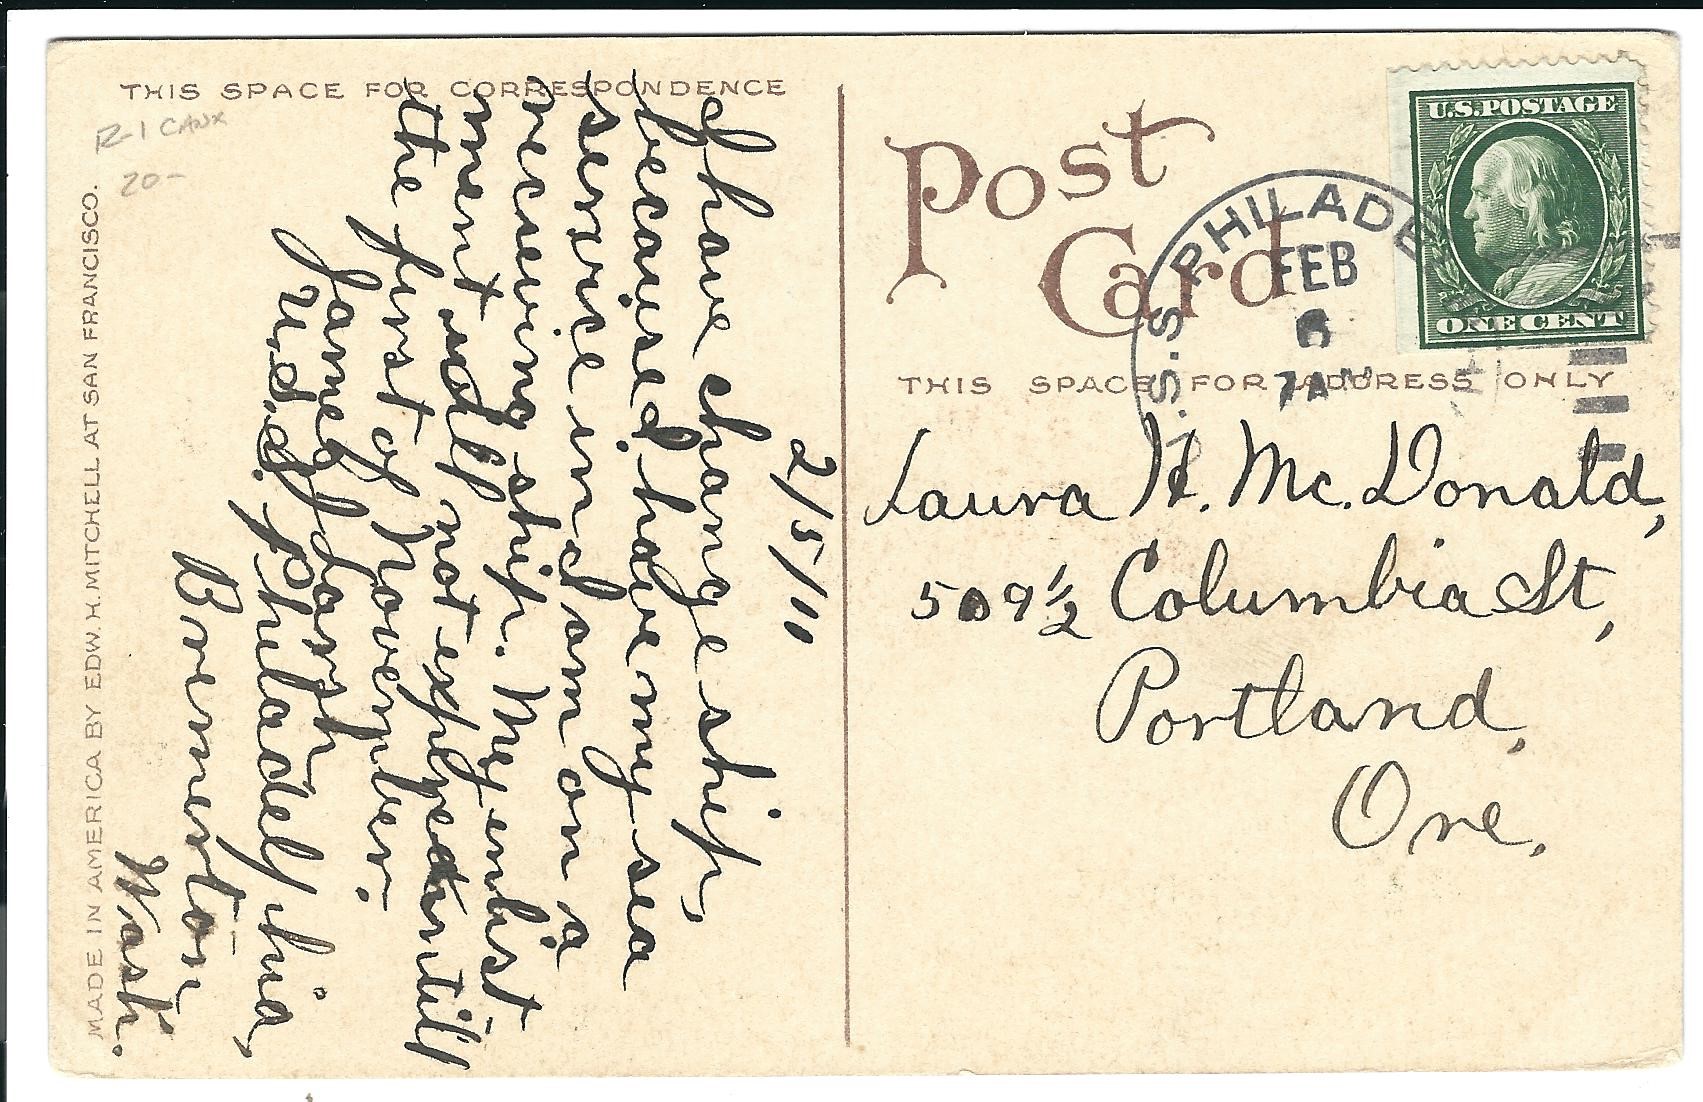 THIS SPACE FOR CORRESPONDENCE
R-1 CANX
20-
2/5/11
I have change ship,
because I have my sea
service in I am on a
receiving ship. My enlist
ment will not expire until
the first of November.
James J.
U.S.S. Philadelphia,
Bremerton
Wash.
MADE IN AMERICA BY EDW. H. MITCHELL AT SAN FRANCISCO.
Post
Card
U.S.S. PHILADE
FEB
6
7 AM
U.S. POSTAGE
ONE CENT
THIS SPACE FOR ADDRESS ONLY
Laura H. McDonald,
509 1/2 Columbia St,
Portland,
Ore.